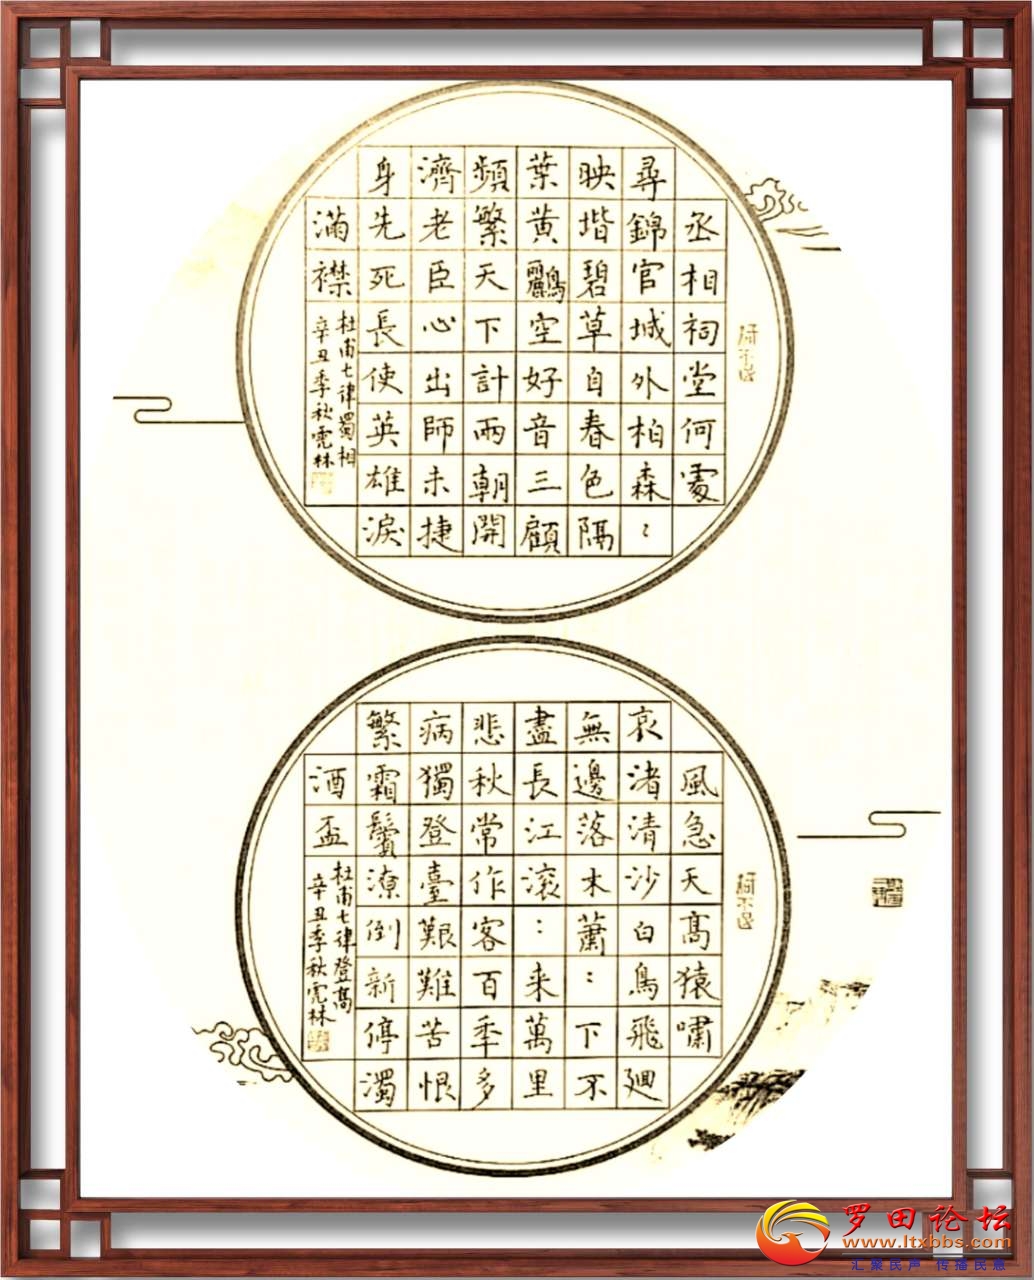 丞相祠堂何處
尋錦官城外柏森〻
映堦碧草自春色隔
葉黄鸝空好音三顧
頻繁天下計兩朝開
濟老臣心出師未捷
身先死長使英雄淚
滿襟
杜甫七律蜀相
辛丑季秋虎林
風急天高猿嘯
哀渚清沙白鳥飛廻
無邊落木蕭〻下不
盡長江滾〻来萬里
悲秋常作客百年多
病獨登臺艱難苦恨
繁霜鬢潦倒新停濁
酒盃
杜甫七律登高
辛丑季秋虎林
罗田论坛
www.ltxbbs.com
汇聚民声 传播民意